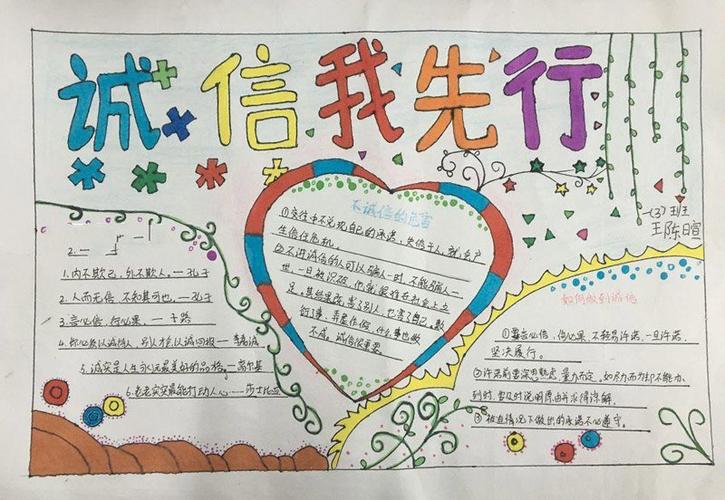 诚信我先行
一(3)班
王陈日宣
不诚信的危害
①交往中不兑现自己的承诺，失信于人，就会产
生信任危机。
②不讲诚信的人可以骗人一时，不能骗人一
世，一旦被识破，他就很难在社会上立
足。其结果既害了别人，也害了自己。
弄虚作假，什么事也做
不成。诚信很重要。
1.内不欺己，外不欺人。—孔子
2.人而无信，不知其可也。—孔子
3.言必信，行必果。—子路
4.你必须以诚待人，别人才会以诚回报—李嘉诚
5.诚实是人生永远最美好的品格。—高尔基
6.老老实实最能打动人心——莎士比亚
如何做到诚信
①要言必信，行必果，不轻易许诺，一旦许诺，
坚决履行。
②许诺前要深思熟虑，量力而定。如尽力而为却不能办
到时，要及时说明原由并求得谅解，
③被迫情况下做出的承诺不必遵守。